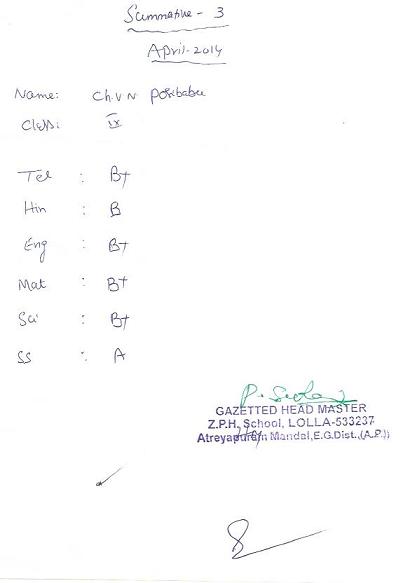 Summative - 3
April-2014
Name: Ch.V.N
Class: IX
Tel : B+
Hin : B
Eng : B+
Mat : B+
Sci : B+
SS : A
GAZETTED HEAD MASTER
Z.P.H. School, LOLLA-533237
Atreyapuram Mandal, E.G.Dist., (A.P.))